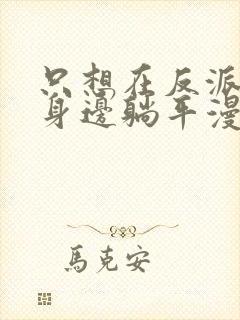 只想在反派
身邊躺平漫
馬克安